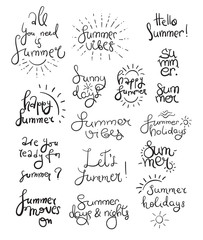 all
you need
is
summer
summer
vibes
Hello
Summer!
Sunny
days
su
mm
er.
happy
summer
happy
summer
Sum
mer
Summer
vibes
Summer
holidays
are you
ready for
summer?
Let's
Summer!
Sum
mer
Summer
moves
on
Summer
days & nights
Summer
holidays